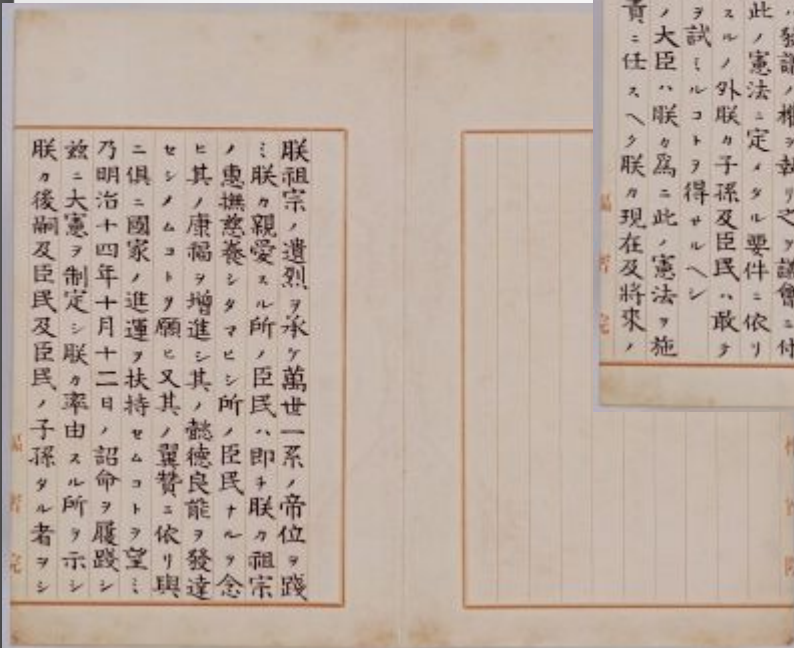 發議ノ權ヲ執リ之ヲ議會ニ付
此ノ憲法ニ定メタル要件ニ依リ
スルノ外朕カ子孫及臣民ハ敢テ
ヲ試ミルコトヲ得サルヘシ
ノ大臣ハ朕カ爲ニ此ノ憲法ヲ施
責ニ任スヘク朕カ現在及將來ノ
朕祖宗ノ遺烈ヲ承ケ萬世一系ノ帝位ヲ踐
ミ朕カ親愛スル所ノ臣民ハ即チ朕カ祖宗
ノ惠撫慈養シタマヒシ所ノ臣民ナルヲ念
ヒ其ノ康福ヲ增進シ其ノ懿德良能ヲ發達
セシメムコトヲ願ヒ又其ノ翼贊ニ依リ與
ニ俱ニ國家ノ進運ヲ扶持セムコトヲ望ミ
乃明治十四年十月十二日ノ詔命ヲ履踐シ
茲ニ大憲ヲ制定シ朕カ率由スル所ヲ示シ
朕カ後嗣及臣民及臣民ノ子孫タル者ヲシ